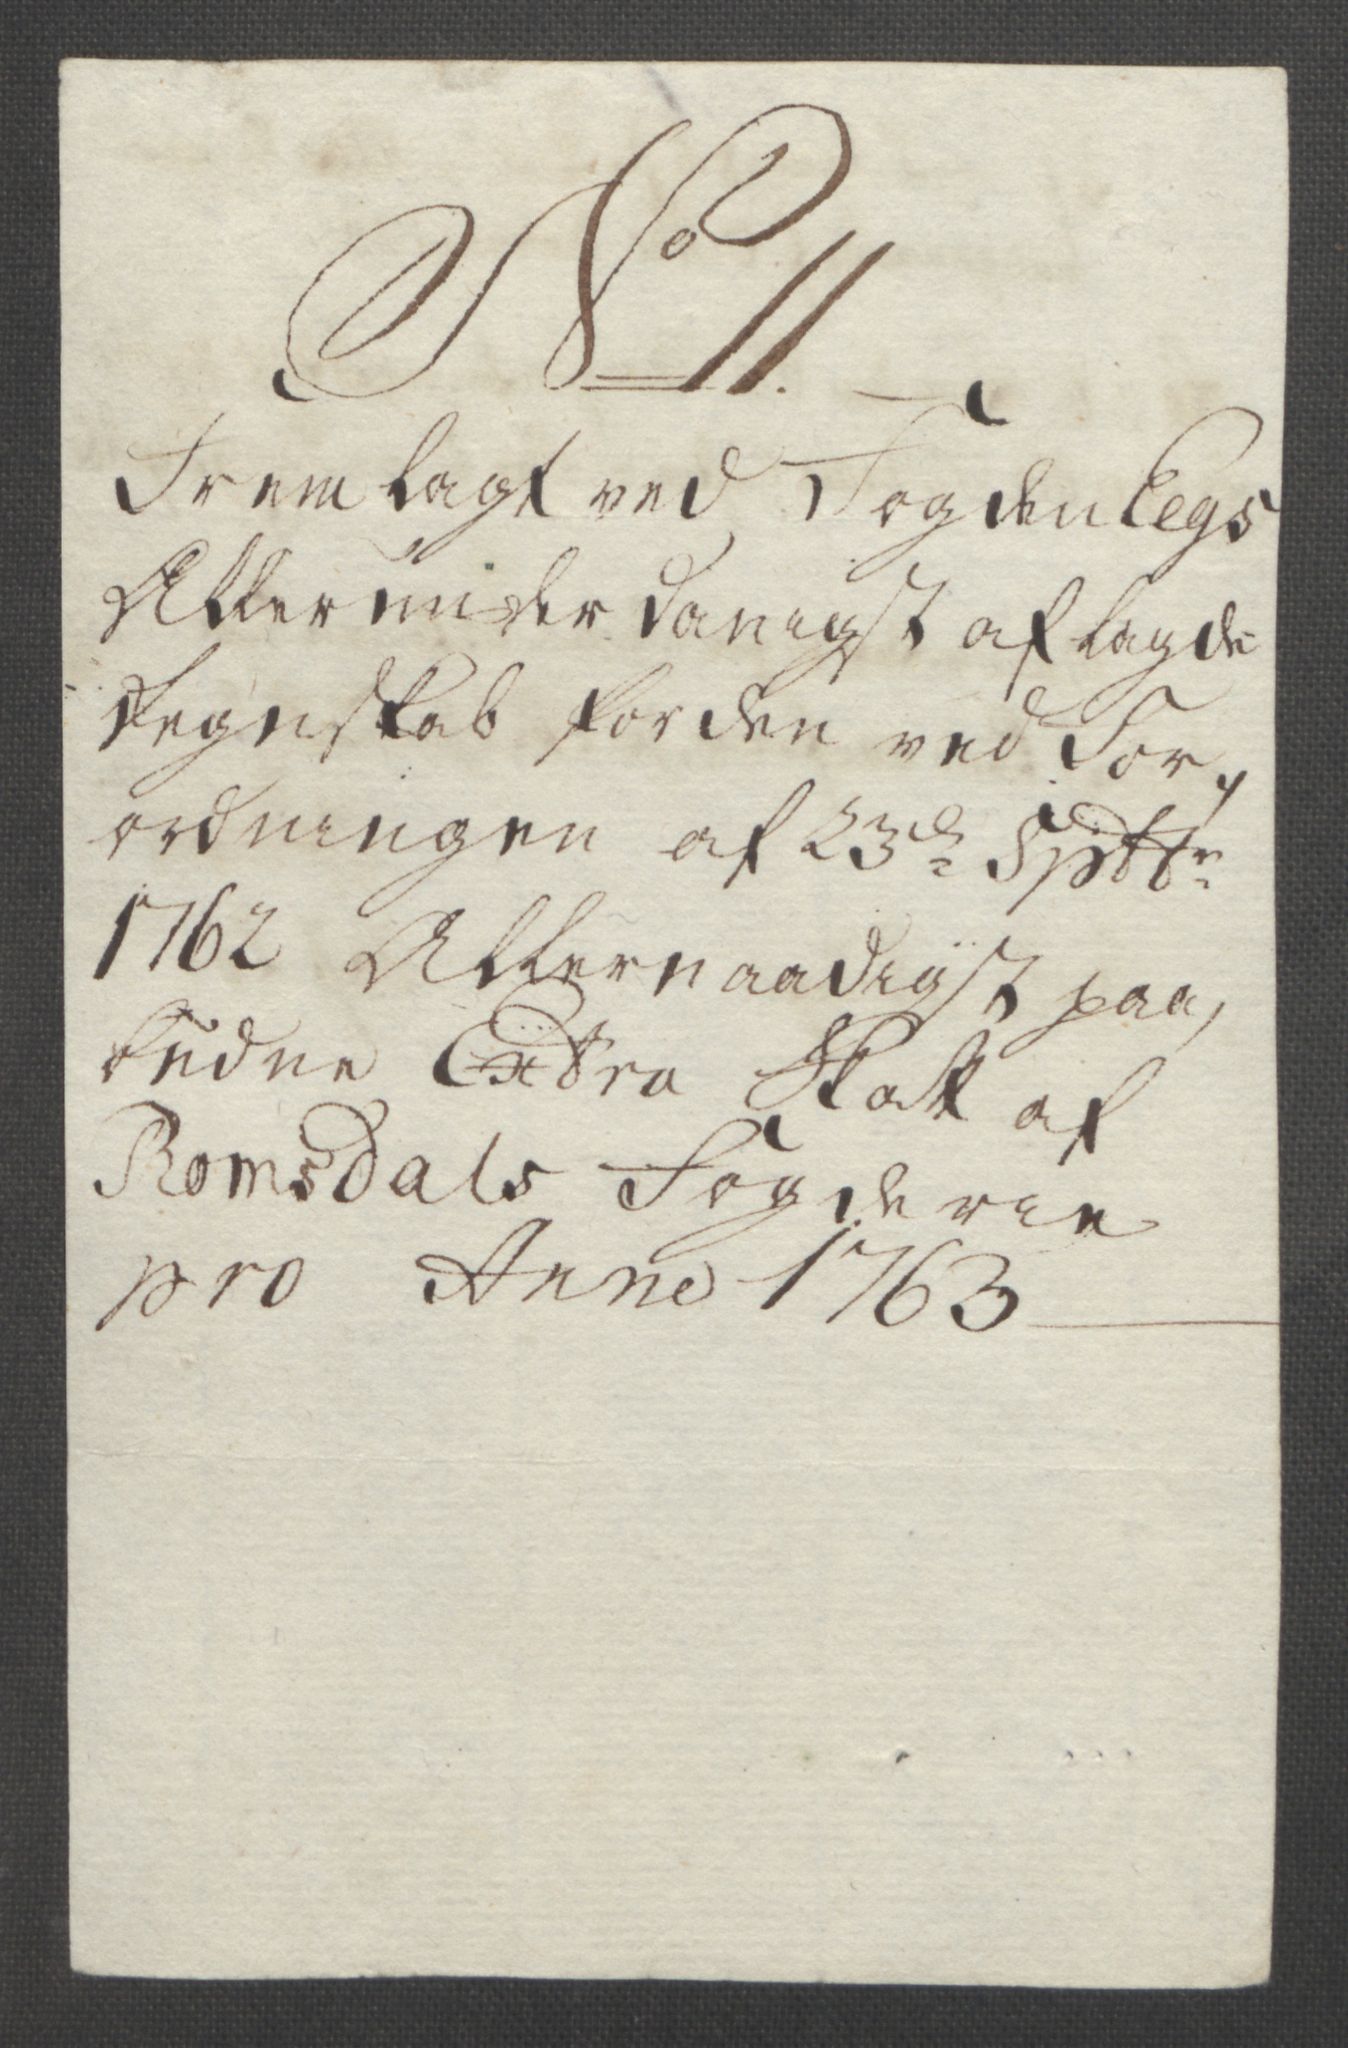 No 11.
Fremlagt ved Fogden Legs
Allerunderdanigst aflagde
Regnskab for den ved For,
ordningen af 23de Sptbr
1762 Allernaadigst paa,
budne Extra Skatt af
Romsdals Fogderie
pro Anno 1763